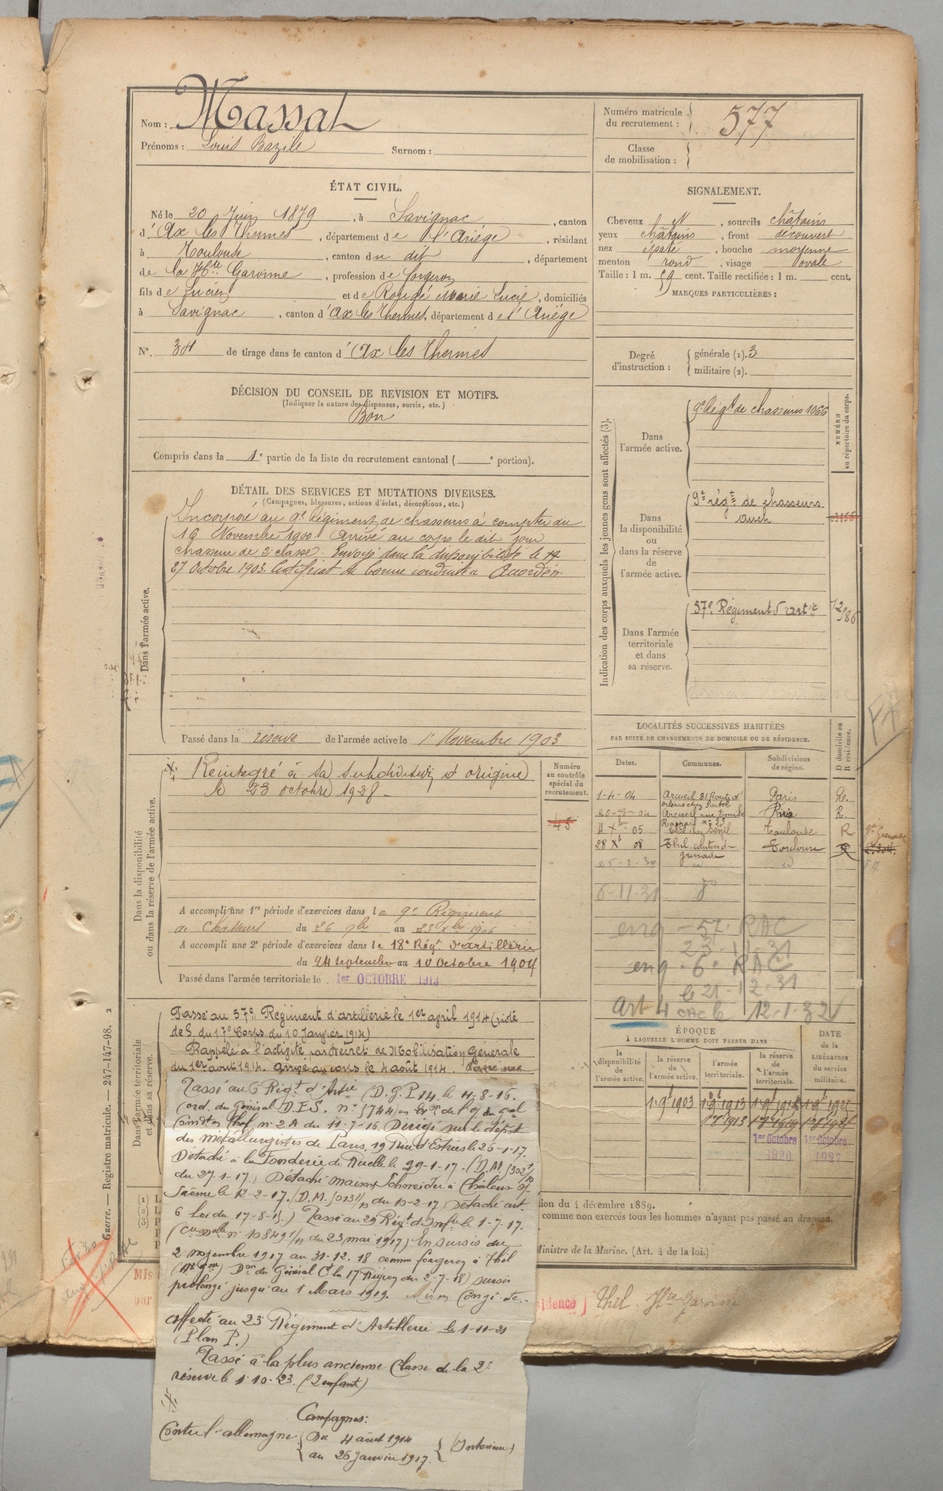 Nom : Massat
Prénoms : Louis Bazile Surnom :
Numéro matricule du recrutement : 577
Classe de mobilisation :
ÉTAT CIVIL.
Né le 20 Juin 1879, à Savignac, canton
d'Ax les Thermes, département de l'Ariège, résidant
à Toulouse, canton du dit, département
de la Hte Garonne, profession de forgeron
fils de Lucien et de Rougé Marie Lucie, domiciliés
à Savignac, canton d'Ax les Thermes, département de l'Ariège
N° 34 de tirage dans le canton d'Ax les Thermes
SIGNALEMENT.
Cheveux sourcils châtains
yeux châtains, front découvert
nez épaté, bouche moyenne
menton rond, visage ovale
Taille : 1 m. 59 cent. Taille rectifiée : 1 m. cent.
MARQUES PARTICULIÈRES :
Degré d'instruction : générale (1). 3
militaire (2).
DÉCISION DU CONSEIL DE REVISION ET MOTIFS.
(Indiquer la nature des dispenses, sursis, etc.)
Bon
Compris dans la 1e partie de la liste du recrutement cantonal ( e portion).
DÉTAIL DES SERVICES ET MUTATIONS DIVERSES.
(Campagnes, blessures, actions d'éclat, décorations, etc.)
Dans l'armée active.
Incorporé au 9e Régiment de chasseurs à compter du
16 Novembre 1900. Arrivé au corps le dit jour
chasseur de 2e classe. Envoyé dans la disponibilité le
27 Octobre 1903. Certificat de bonne conduite accordé.
Passé dans la réserve de l'armée active le 1 Novembre 1903
Indication des corps auxquels les jeunes gens sont affectés (3).
NUMÉRO au répertoire du corps.
Dans l'armée active.
9e Régt de chasseurs 1066
Dans la disponibilité ou dans la réserve de l'armée active.
9e régt de chasseurs
Auch
Dans l'armée territoriale et dans sa réserve.
57e Régiment d'artie
Dans la disponibilité ou dans la réserve de l'armée active.
Réintégré à sa subdivision d'origine
le 23 octobre 1928.
Numéro au contrôle spécial du recrutement.
45
A accompli une 1re période d'exercices dans le 9e Régiment
de Chasseurs du 26 9bre au 23 Xbre 1906
A accompli une 2e période d'exercices dans le 18e Régt d'artillerie
du 24 septembre au 10 Octobre 1909
Passé dans l'armée territoriale le 1er OCTOBRE 1913
LOCALITÉS SUCCESSIVES HABITÉES
PAR SUITE DE CHANGEMENTS DE DOMICILE OU DE RÉSIDENCE.
Dates. Communes. Subdivisions de région. D domicile ou R résidence.
1-4-04 Arcueil 81 Route d'Orléans Paris R.
Arcueil Paris R.
4 Xbre 05 Toulouse R
28 Xbre 08 Thil Toulouse R
25-2-30
6-11-31
enq - 57 RAC
23-11-31
enq. 6e RAC
le 21-12-31
art 4 12-1-32
Dans l'armée territoriale et dans sa réserve.
Passé au 57e Régiment d'artillerie le 1er avril 1914
du 17e Corps du 10 Janvier 1914)
Rappelé à l'activité par Décret de Mobilisation Générale
du 1er août 1914. Arrivé au corps le 4 août 1914.
Passé au 6 Régt d'Artie (D.G.P. 14, le 11-8-16.
du 11-7-16. Dirigé sur le dépôt
des métallurgistes de Paris, le 26-1-17.
Détaché à la Fonderie de Ruelle le 29-1-17. (D.M.
du 27-1-17.) Détaché maison Schneider à Châlons s/
Saône le 12-2-17. (D.M. du 13-2-17) Détaché art.
6 loi du 17-8-15.) Passé au 29 Régt d'Infie le 1-7-17.
(Circulaire n° 13849 du 23 mai 1917). En sursis du
2 novembre 1917 au 31-12-18 comme forgeron à Thil
(Hte Gne) Don du Général Ct la 17 Région du 2-7-18) sursis
prolongé jusqu'au 1 Mars 1919. Mis en Congé
affecté au 23e Régiment d'Artillerie le 1-11-21
(Plan P.)
Passé à la plus ancienne Classe de la 2e
réserve le 1-10-23. (2 enfants)
Campagnes :
Contre l'allemagne Du 4 août 1914
au 25 janvier 1917. (Intérieur)
ÉPOQUE
À LAQUELLE L'HOMME DOIT PASSER DANS
la disponibilité de l'armée active. la réserve de l'armée active. l'armée territoriale. la réserve de l'armée territoriale. DATE DE LA LIBÉRATION du service militaire.
1-9bre 1903
1er Octobre 1er Octobre
tion du 4 décembre 1889.
comme non exercés tous les hommes n'ayant pas passé au drapeau.
Ministre de la Marine. (Art. 4 de la loi)
Guerre. — Registre matricule. — 247-147-98. 2
Thil Hte Garonne